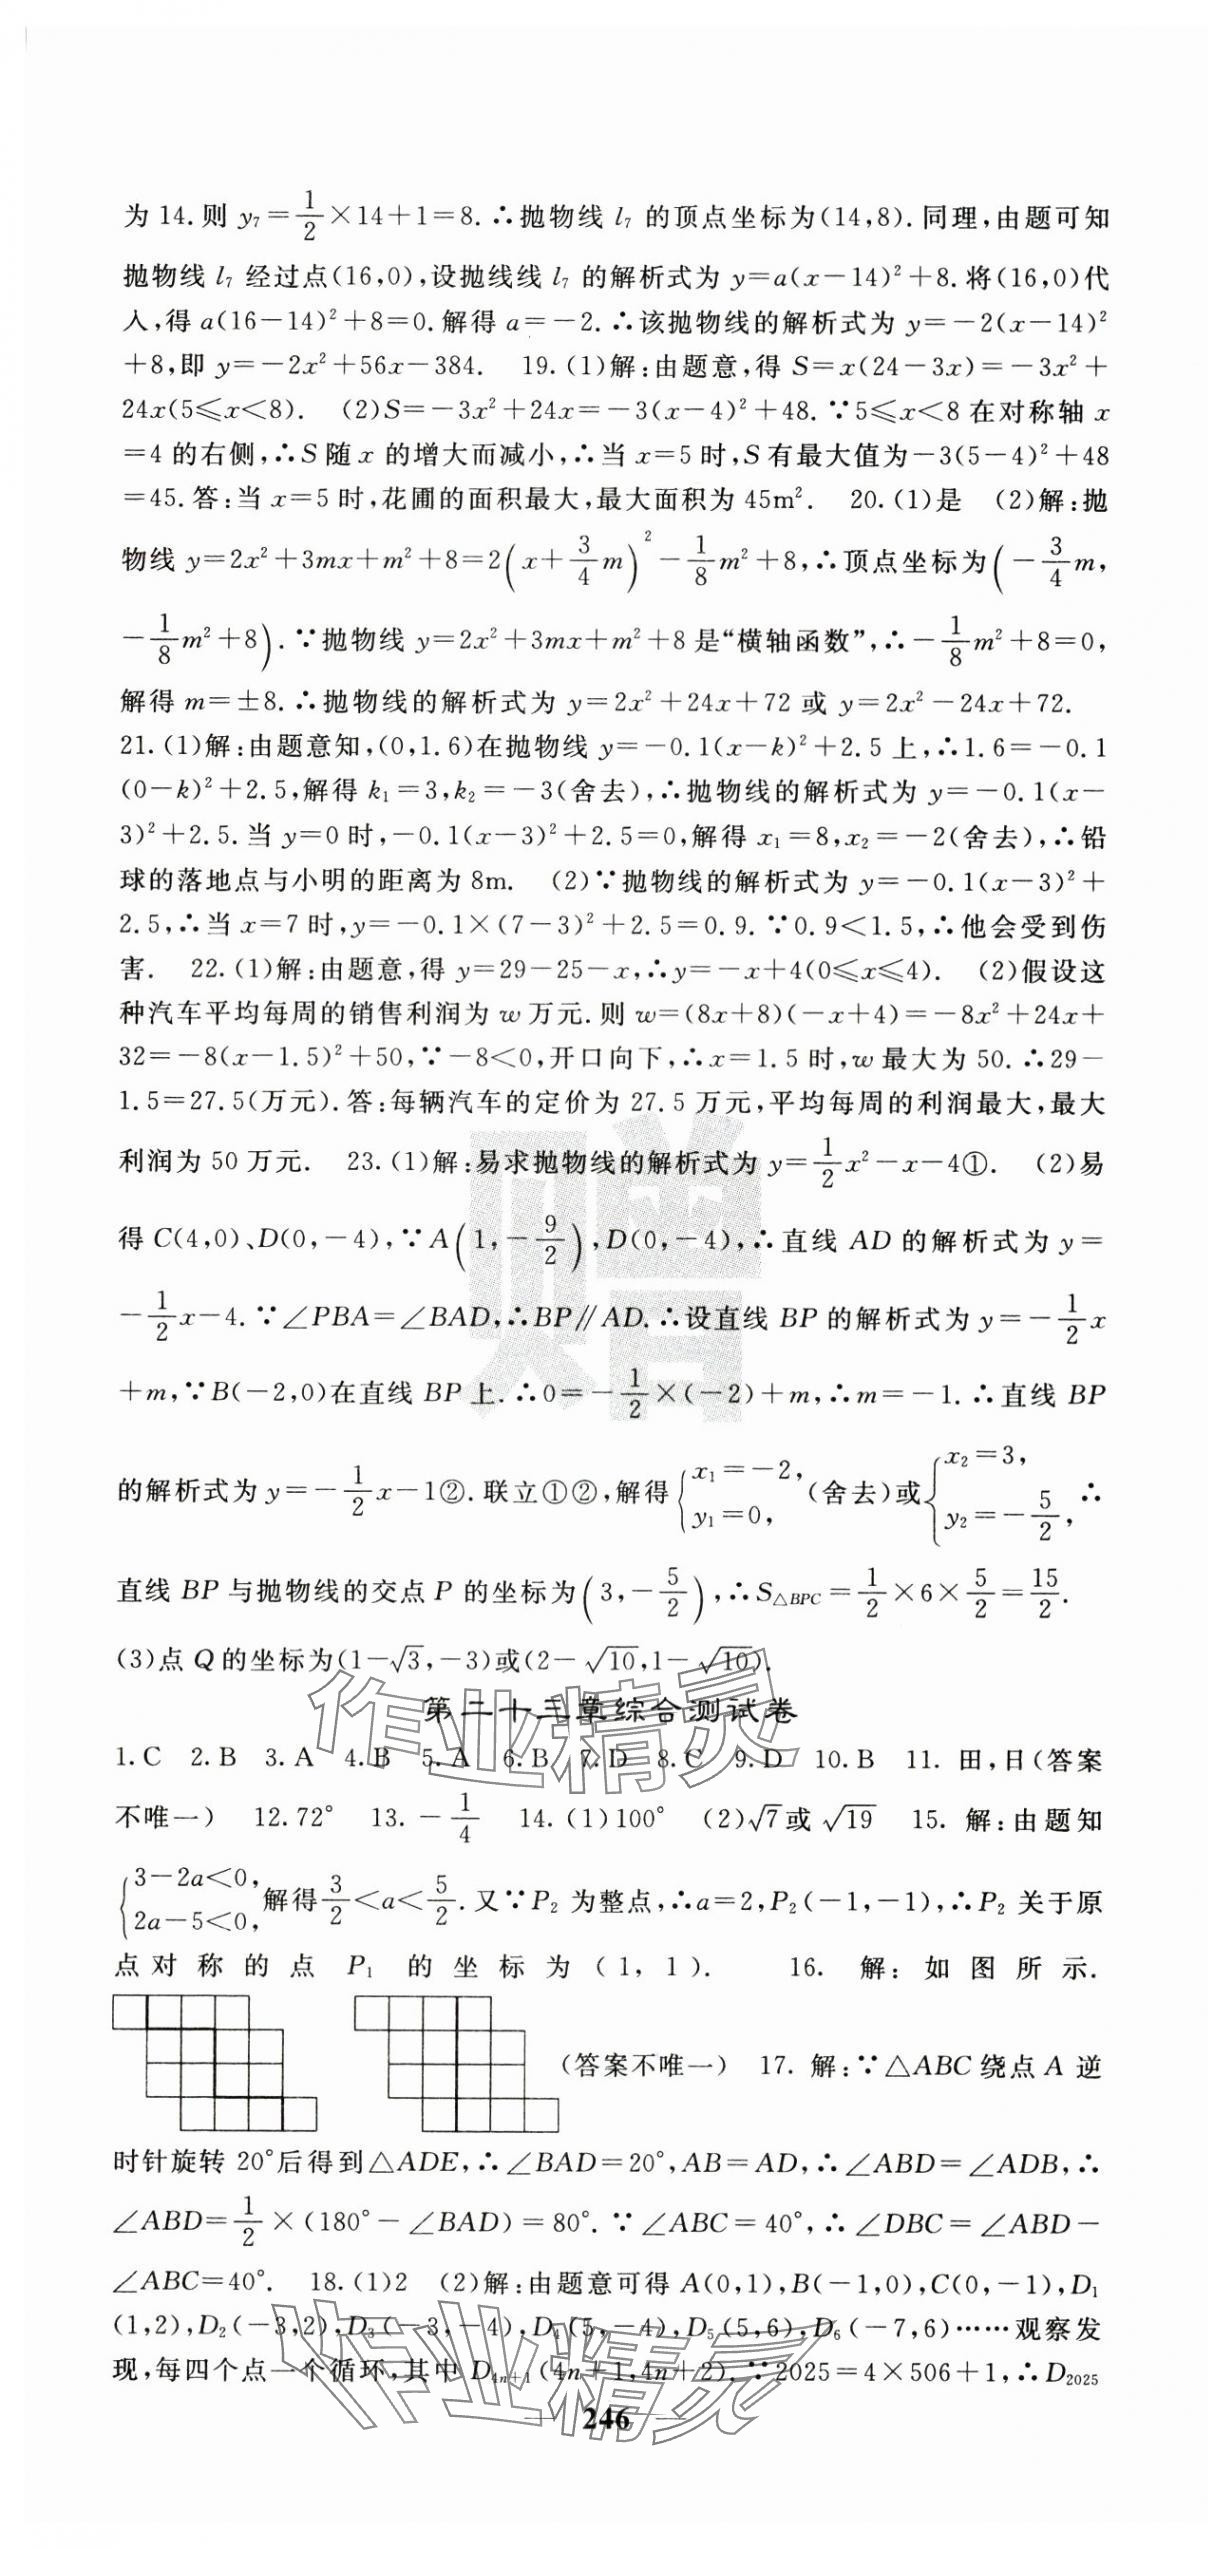 为 14.则 y₇=1/2×14+1=8.∴抛物线 l₇ 的顶点坐标为(14,8).同理,由题可知
抛物线 l₇ 经过点(16,0),设抛线线 l₇ 的解析式为 y=a(x-14)²+8.将(16,0)代
入,得 a(16-14)²+8=0.解得 a=-2.∴该抛物线的解析式为 y=-2(x-14)²
+8,即 y=-2x²+56x-384. 19.(1)解:由题意,得 S=x(24-3x)=-3x²+
24x(5≤x<8). (2)S=-3x²+24x=-3(x-4)²+48.∵5≤x<8 在对称轴 x
=4 的右侧,∴S 随 x 的增大而减小,∴当 x=5 时,S 有最大值为-3(5-4)²+48
=45.答:当 x=5 时,花圃的面积最大,最大面积为 45m². 20.(1)是 (2)解:抛
物线 y=2x²+3mx+m²+8=2(x+3/4m)²-1/8m²+8,∴顶点坐标为(-3/4m,
-1/8m²+8).∵抛物线 y=2x²+3mx+m²+8 是“横轴函数”,∴-1/8m²+8=0,
解得 m=±8.∴抛物线的解析式为 y=2x²+24x+72 或 y=2x²-24x+72.
21.(1)解:由题意知,(0,1.6)在抛物线 y=-0.1(x-k)²+2.5 上,∴1.6=-0.1
(0-k)²+2.5,解得 k₁=3,k₂=-3(舍去),∴抛物线的解析式为 y=-0.1(x-
3)²+2.5.当 y=0 时,-0.1(x-3)²+2.5=0,解得 x₁=8,x₂=-2(舍去),∴铅
球的落地点与小明的距离为 8m. (2)∵抛物线的解析式为 y=-0.1(x-3)²+
2.5,∴当 x=7 时,y=-0.1×(7-3)²+2.5=0.9.∵0.9<1.5,∴他会受到伤
害. 22.(1)解:由题意,得 y=29-25-x,∴y=-x+4(0≤x≤4). (2)假设这
种汽车平均每周的销售利润为 w 万元.则 w=(8x+8)(-x+4)=-8x²+24x+
32=-8(x-1.5)²+50,∵-8<0,开口向下,∴x=1.5 时,w 最大为 50.∴29-
1.5=27.5(万元).答:每辆汽车的定价为 27.5 万元,平均每周的利润最大,最大
利润为 50 万元. 23.(1)解:易求抛物线的解析式为 y=1/2x²-x-4①. (2)易
得 C(4,0)、D(0,-4),∵A(1,-9/2),D(0,-4),∴直线 AD 的解析式为 y=
-1/2x-4.∵∠PBA=∠BAD,∴BP∥AD.∴设直线 BP 的解析式为 y=-1/2x
+m,∵B(-2,0)在直线 BP 上.∴0=-1/2×(-2)+m,∴m=-1.∴直线 BP
的解析式为 y=-1/2x-1②.联立①②,解得{x₁=-2, y₁=0,(舍去)或{x₂=3, y₂=-5/2,∴
直线 BP 与抛物线的交点 P 的坐标为(3,-5/2),∴S△BPC=1/2×6×5/2=15/2.
(3)点 Q 的坐标为(1-√3,-3)或(2-√10,1-√10).
第二十三章综合测试卷
1.C 2.B 3.A 4.B 5.A 6.B 7.D 8.C 9.D 10.B 11.田,日(答案
不唯一) 12.72° 13.-1/4 14.(1)100° (2)√7或√19 15.解:由题知
{3-2a<0, 2a-5<0,解得3/2<a<5/2.又∵P₂ 为整点,∴a=2,P₂(-1,-1),∴P₂ 关于原
点对称的点 P₁ 的坐标为(1,1). 16. 解:如图所示.
(答案不唯一) 17. 解:∵△ABC 绕点 A 逆
时针旋转 20°后得到△ADE,∴∠BAD=20°,AB=AD,∴∠ABD=∠ADB,∴
∠ABD=1/2×(180°-∠BAD)=80°.∵∠ABC=40°,∴∠DBC=∠ABD-
∠ABC=40°. 18.(1)2 (2)解:由题意可得 A(0,1),B(-1,0),C(0,-1),D₁
(1,2),D₂(-3,2),D₃(-3,-4),D₄(5,-4),D₅(5,6),D₆(-7,6)……观察发
现,每四个点一个循环,其中 D₄ₙ₊₁(4n+1,4n+2).∵2025=4×506+1,∴D₂₀₂₅
246
赠
作业精灵
作业精灵